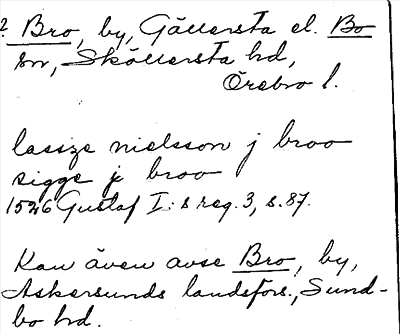 ? Bro, by, Gällersta el. Bo
sn, Sköllersta hd,
Örebro l.
lassze nielsson j broo
sigge j broo
1546 Gustaf I:s reg. 3, s. 87.
Kan även avse Bro, by,
Askersunds landsförs., Sund-
bo hd.